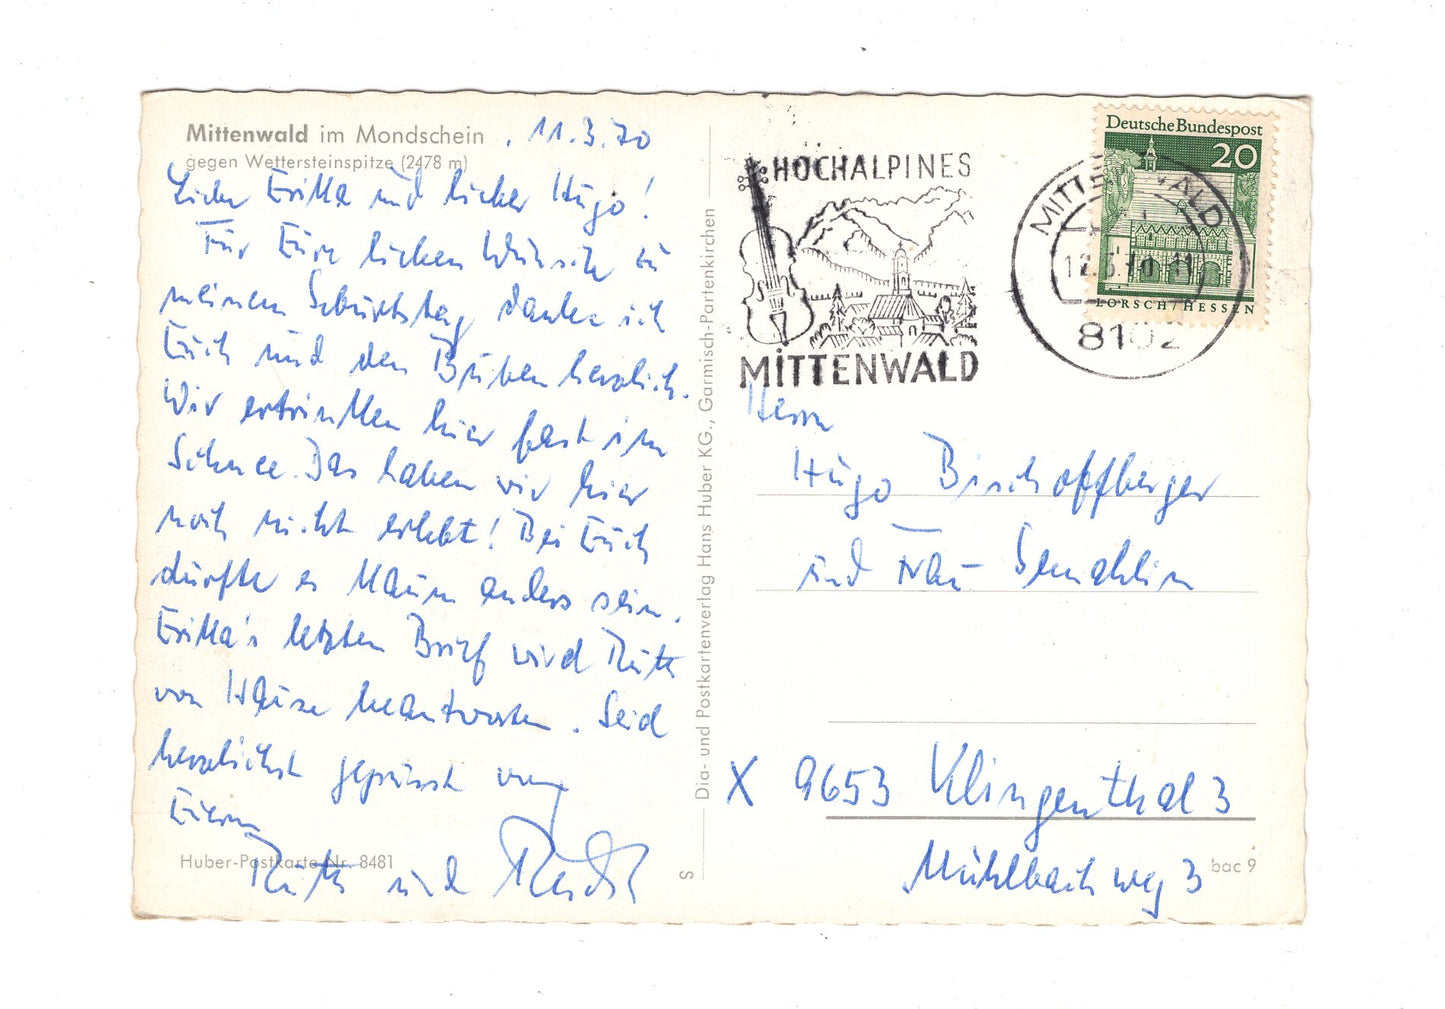 Mittenwald im Mondschein
gegen Wettersteinspitze (2478 m)
11.3.70
Liebe Erika und lieber Hugo!
Für Eure lieben Wünsche zu
meinem Geburtstag danke ich
Euch und den Buben herzlich.
Wir ertrinken hier fast im
Schnee. Das haben wir hier
noch nicht erlebt! Bei Euch
dürfte es kaum anders sein.
Erika's letzten Brief wird Ruth
von Hause beantworten. Seid
herzlichst gegrüsst von
Euern
Ruth und
Huber-Postkarte Nr. 8481
S
Dia- und Postkartenverlag Hans Huber KG., Garmisch-Partenkirchen
HOCHALPINES
MITTENWALD
Deutsche Bundespost
20
LORSCH/HESSEN
MITTENWALD
12.3.70-11
8102
Herrn
Hugo Bischoffberger
und Frau Gemahlin
X 9653 Klingenthal 3
Mühlbachweg 3
bac 9